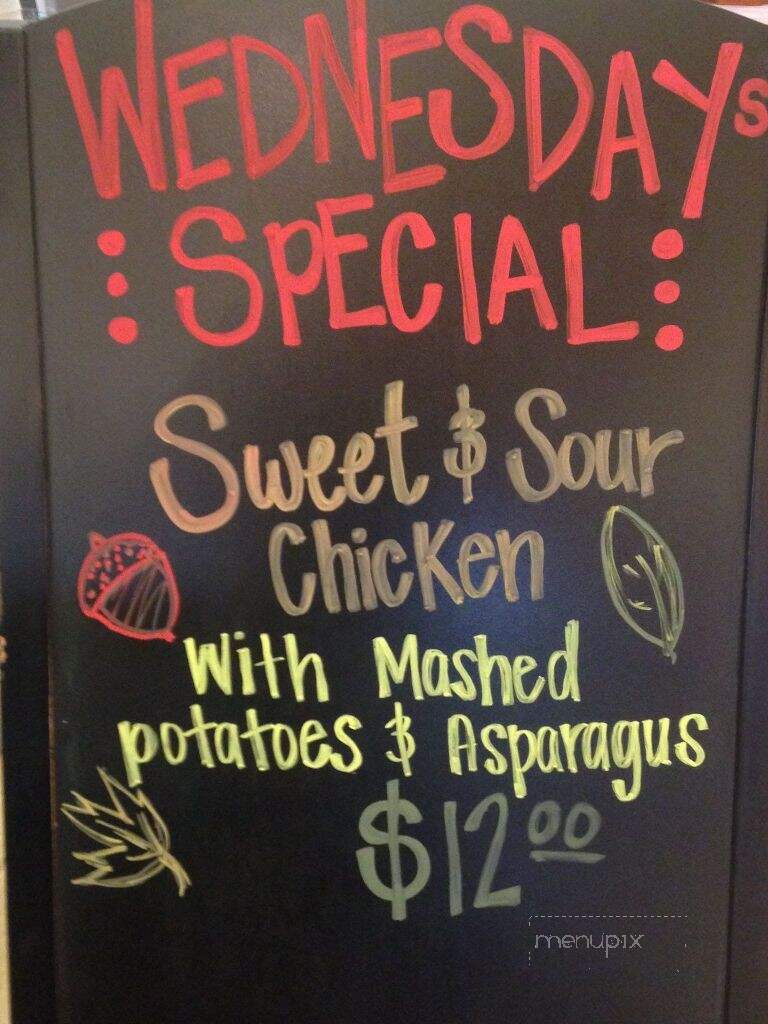 WEDNESDAYs
SPECIAL
Sweet & Sour
Chicken
With Mashed
potatoes & Asparagus
$12.00
menupix